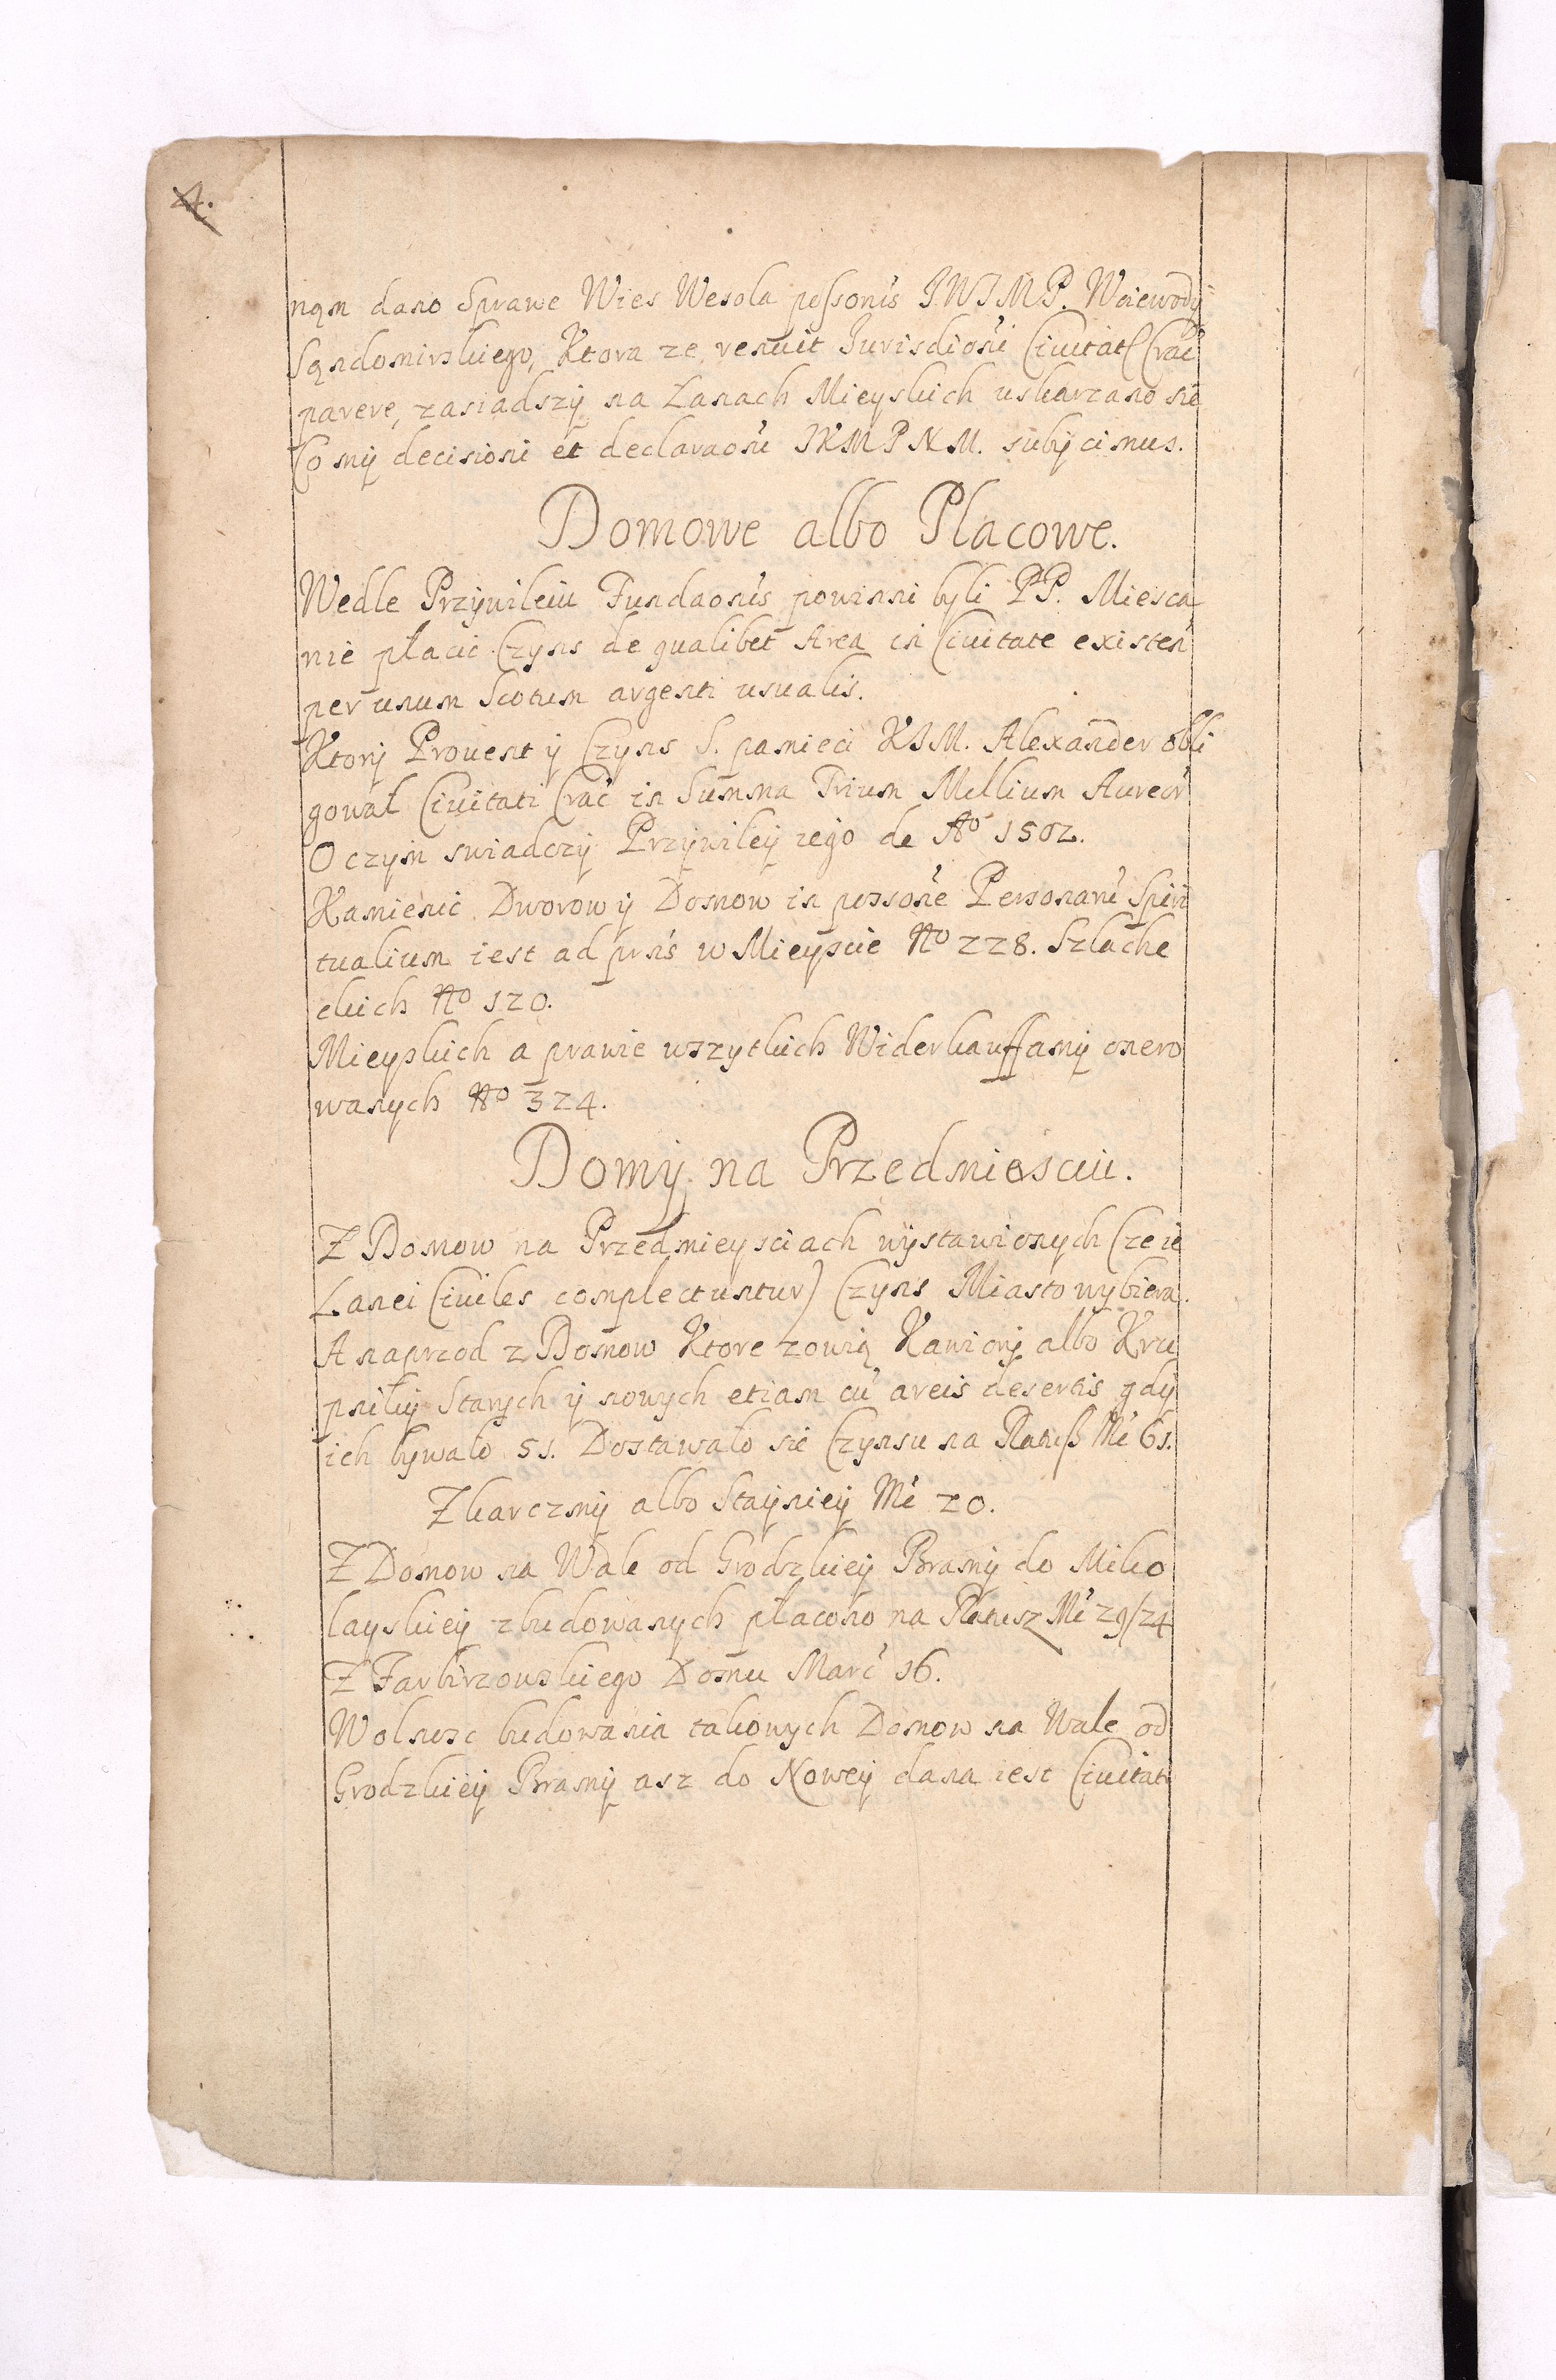 4.
nąm dano Sprawe Wies Wesola possonis JWJMP. Woiewody
Sąndomirskiego, Ktora ze renuit Jurisdioni Civitat Crac
parere, zasiadszÿ na Łanach Mieyskich uskarzano sie
Co mÿ decisioni et declaraoni JKMPNM. subÿcimus.
Domowe albo Placowe.
Wedle Przÿwileiu Fundaonis powinni byli PP. Miesca
nie płacic Czyns de qualibet Area in Civitate existen
per unum Scotum argenti usualis.
Ktorÿ Prouent ÿ Czyns S. pamieci KJM. Alexander obli
gował Civitati Crac in Summa Trium Millium Aureor
O czÿm swiadczÿ Przÿwileÿ iego de Aº 1502.
Kamienic Dworow ÿ Domow in possone Personaru Spiri
tualium iest ad prns w Mieyscie Nº 228. Szlache
ckich Nº 120.
Mieyskich a prawie wszytkich Widerkauffamÿ onero
wanych Nº 324.
Domÿ na Przedmiesciu.
Z Domow na Przedmieysciach wÿstawionych (ze ie
Lanei Civiles complectuntur) Czÿns Miasto wybiera.
A naprzod z Domow Ktore zowią Kawiorÿ albo Kru
pnikÿ Starych ÿ nowych etiam cu areis desertis gdÿ
ich bÿwało 51. Dostawało sie Czynsu na Ratuß Mc 61.
Z karczmÿ albo Staÿnieÿ Mc 20.
Z Domow na Wale od Grodzkieÿ Bramÿ do Miko
layskieÿ zbudowanych płacono na Ratusz Mc 29/24
Z Farbirzowskiego Domu Marc 16.
Wolnosc budowania takowych Domow na Wale od
Grodzkieÿ Bramÿ asz do Noweÿ dana iest Civitati